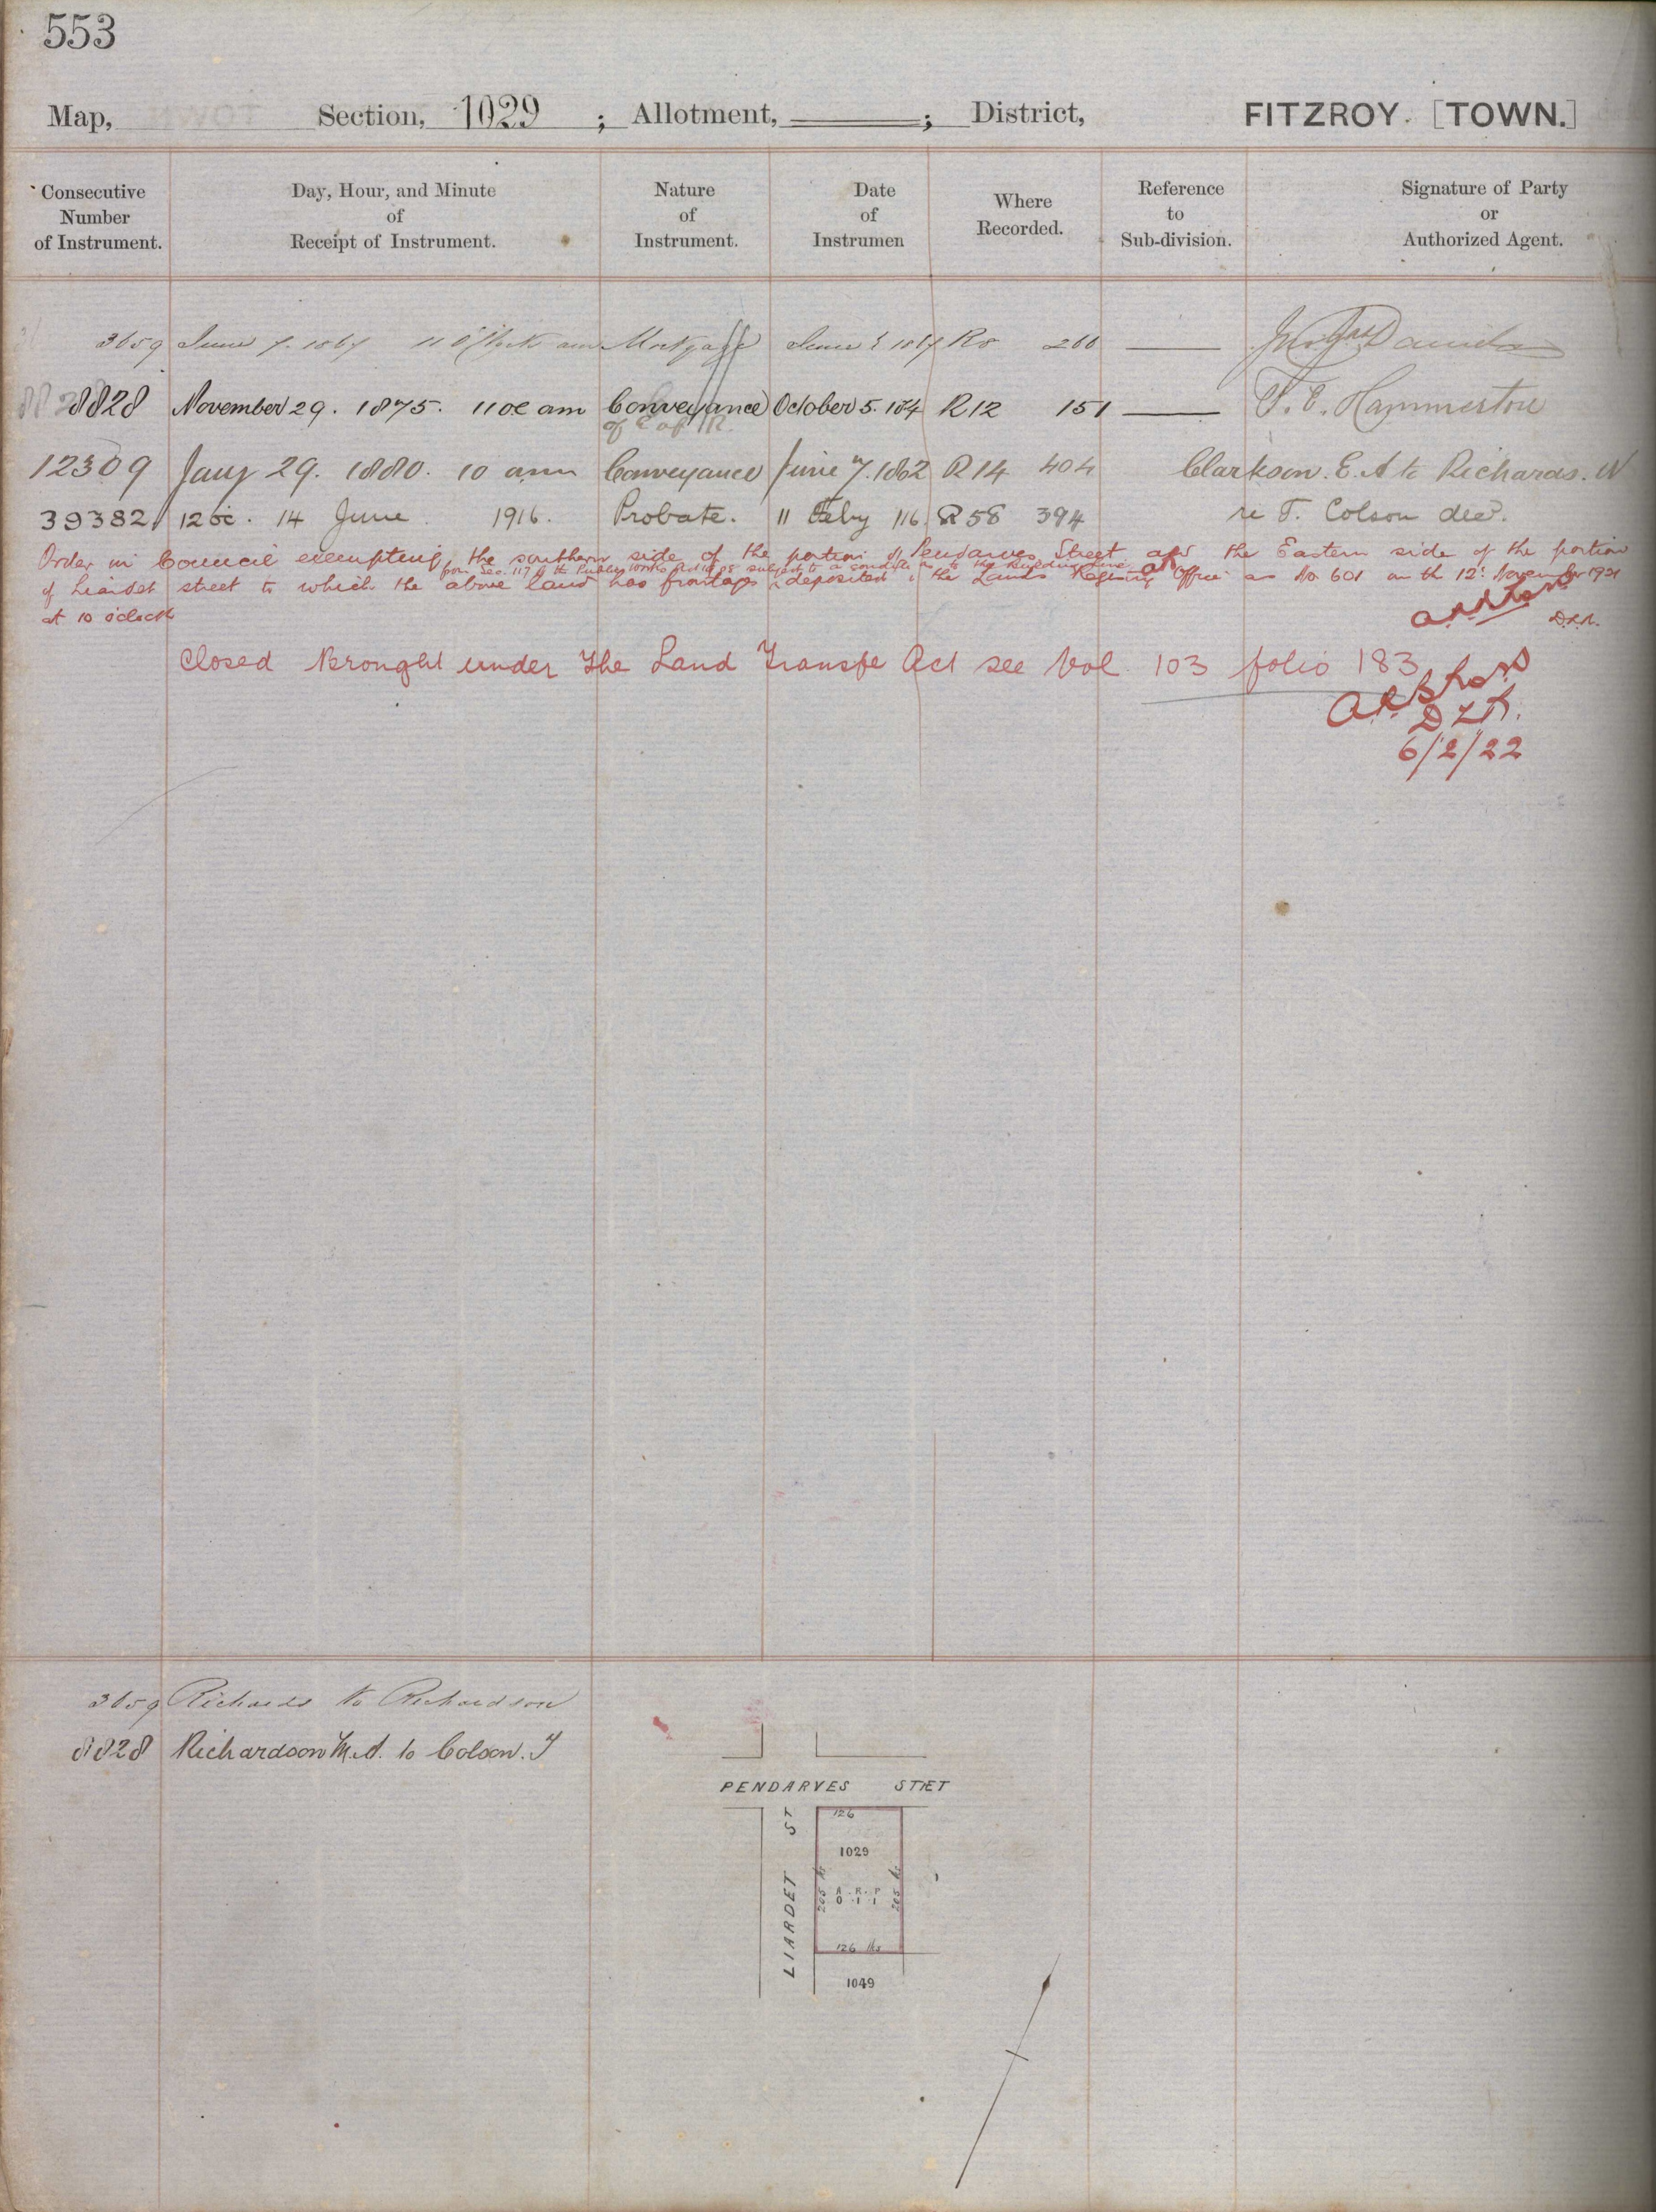 553
Map, Section, 1029 ; Allotment, ; District, FITZROY. [TOWN.]
Consecutive Number of Instrument. Day, Hour, and Minute of Receipt of Instrument. Nature of Instrument. Date of Instrumen Where Recorded. Reference to Sub-division. Signature of Party or Authorized Agent.
3659 June 7. 1867 11 O'Clock am Mortgage June 1867 R8 260
8828 November 29. 1875. 11 OC am Conveyance October 5. 1874 R12 151 T. E. Hammerton
of E of R.
12309 Jany 29. 1880. 10 a.m Conveyance June 7. 1862 R14 404 Clarkson. E. A to Richards. W
39382 12 oc. 14 June 1916. Probate. 11 Feby 1916. R58 394 re T. Colson decd.
Order in Council exempting the southern side of the portion of Pendarves Street and the Eastern side of the portion
from Sec. 117 of the Public Works Act 1908 subject to a condition as to the building line
of Liardet street to which the above land has frontage deposited in the Lands Registry Office as No 601 on the 12th November 1921
at 10 o'clock
D.R.R.
Closed Brought under the Land Transfe Act see Vol 103 folio 183
D.L.R.
6/2/22
3659 Richards to Richardson
8828 Richardson M.A. to Colson. T
PENDARVES STRET
LIARDET ST
126
1029
205 lks
A. R. P
0. 1. 1
205 lks
126 lks
1049